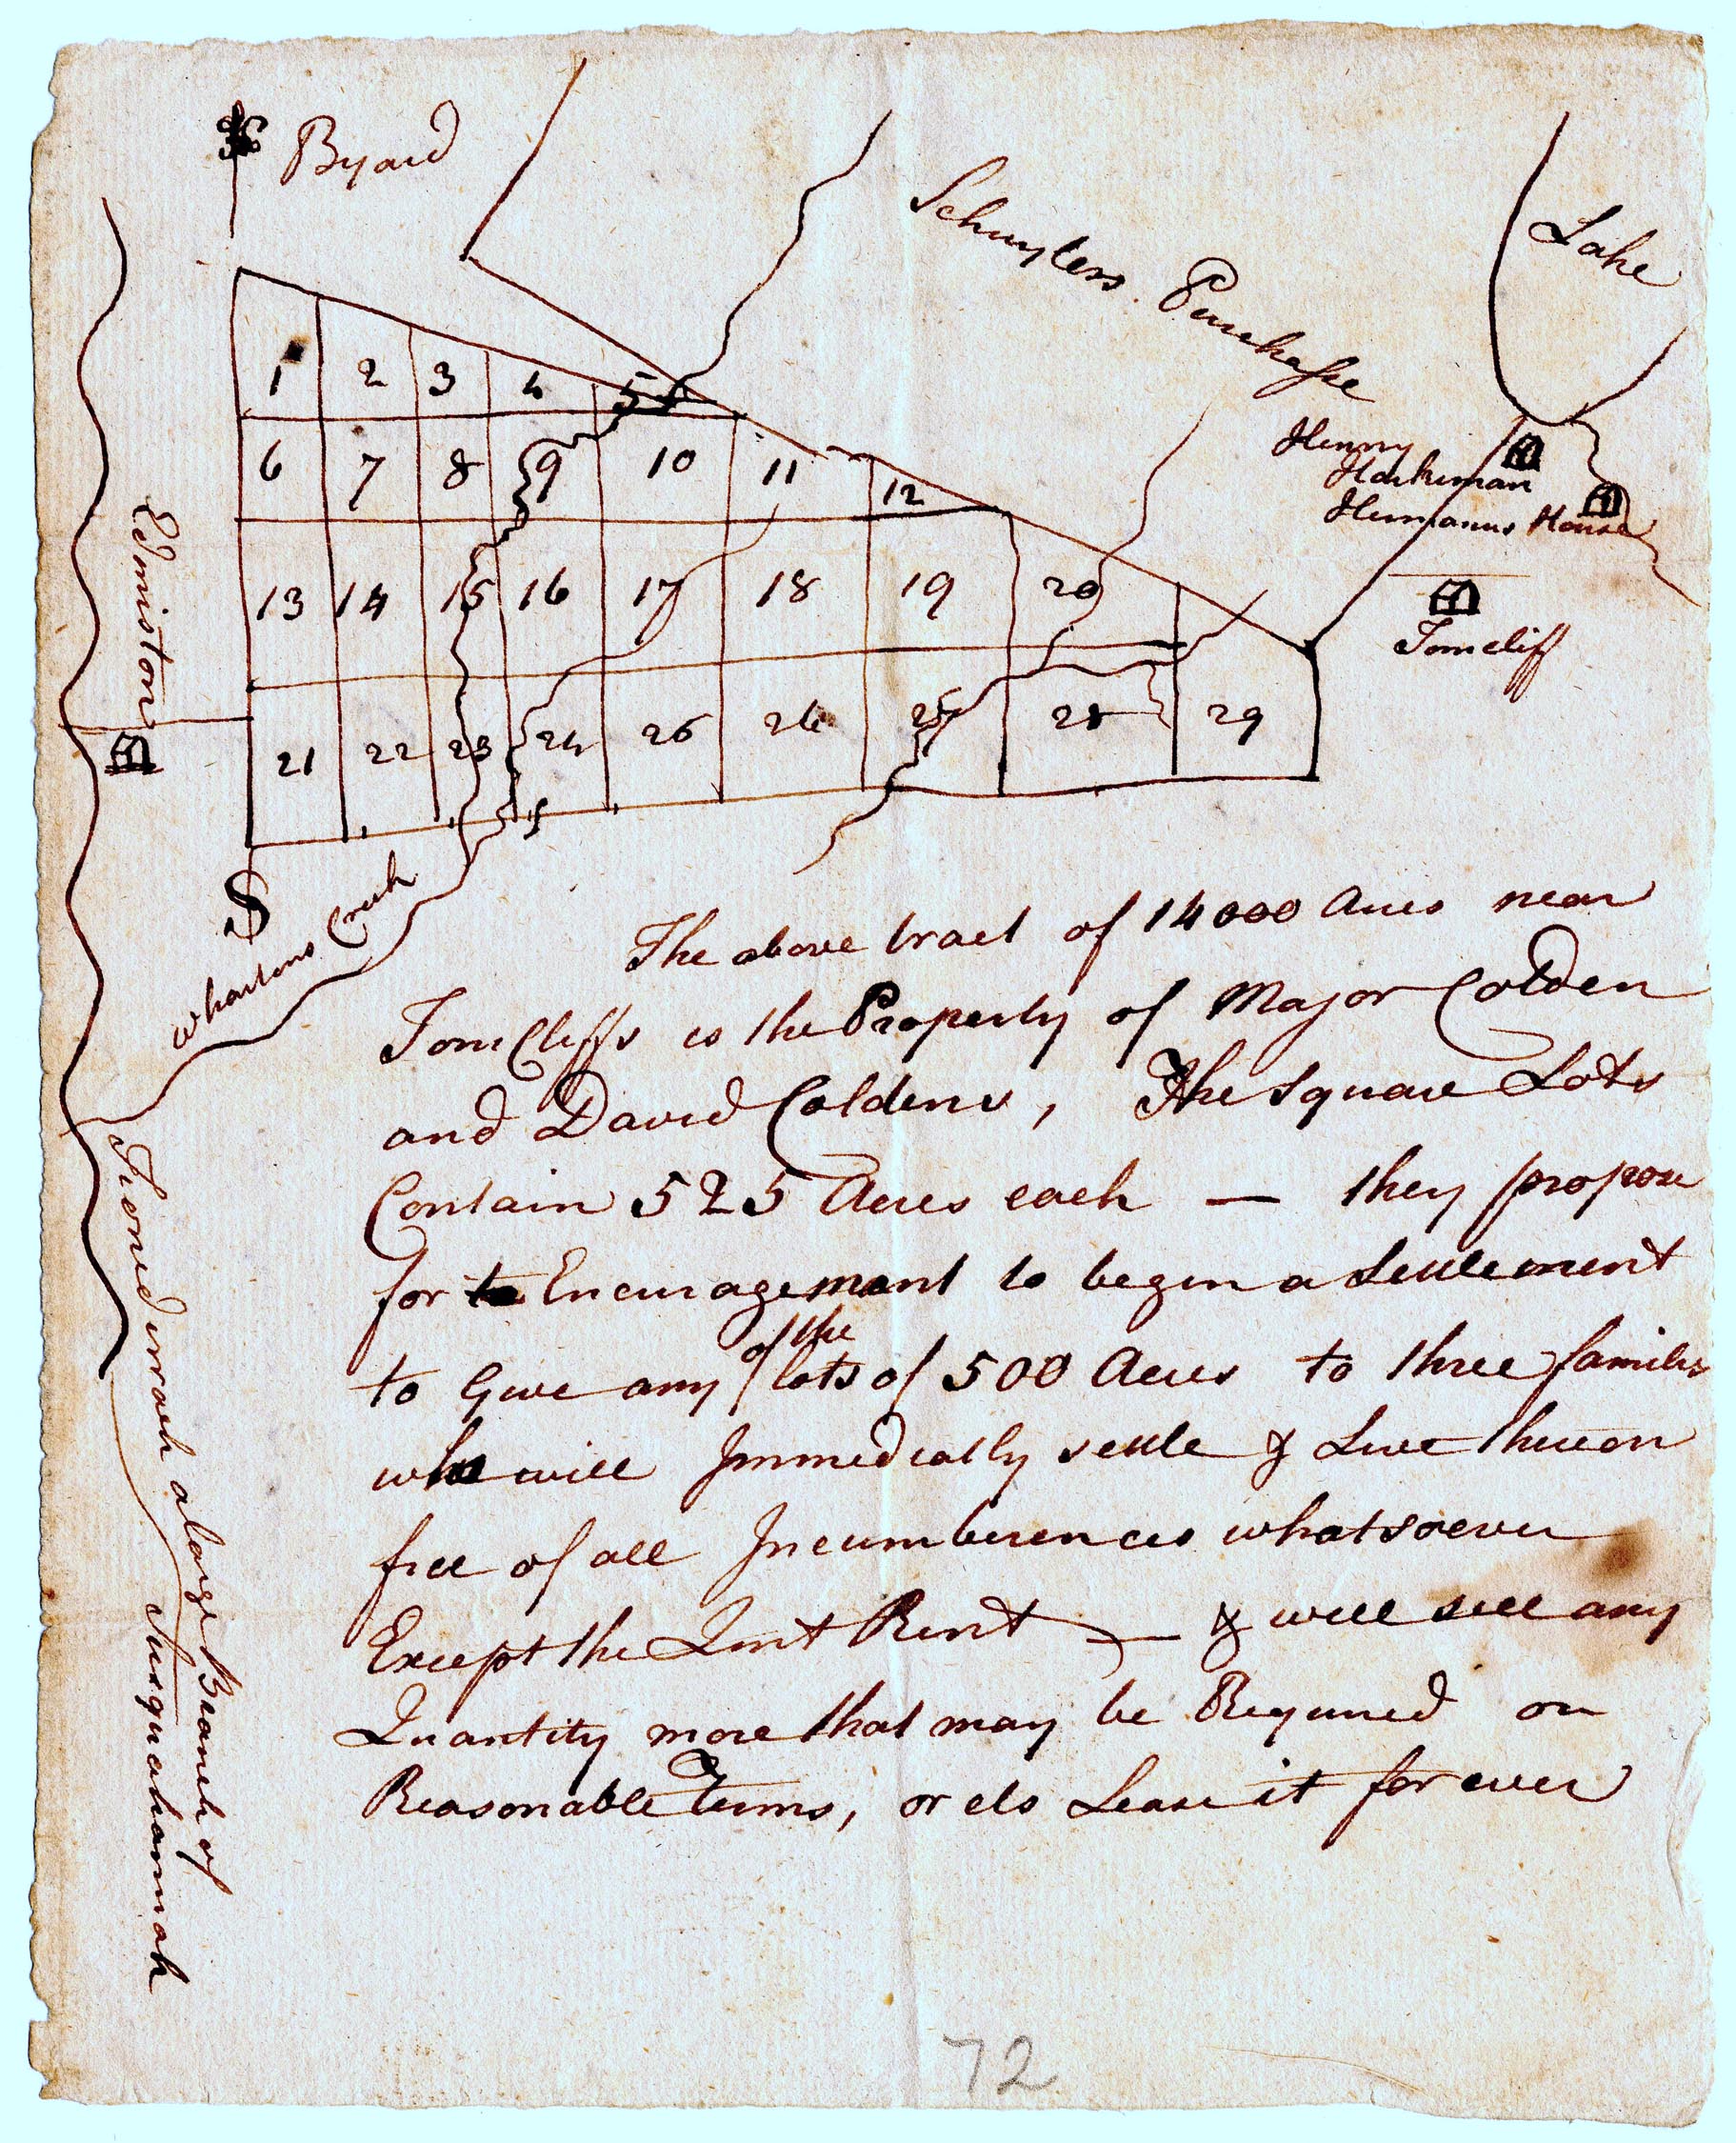 Byard
Schuylers Purchasse
Lake
1 2 3 4 5
6 7 8 9 10 11 12
Henry
Harkiman
Hermanus House
13 14 15 16 17 18 19 20
Tomcliff
Edmiston
21 22 23 24 26 26 25 28 29
S
Whartons Creek
The above tract of 14000 Acres near
TomCliffs is the Property of Major Colden
and David Coldens, The Square Lots
Contain 525 Acres each — they propose
for to Encuragement to begin a Settlement
of the
to Give any lots of 500 Acres to three families
who will Immediatly settle & Live thereon
free of all Incumberences whatsoever
Except the Quit Rent — & will sell any
Quantity more that may be Required on
Reasonable Terms, or els Lease it for ever
Tionederrah a large Branch of
Susquahannah
72